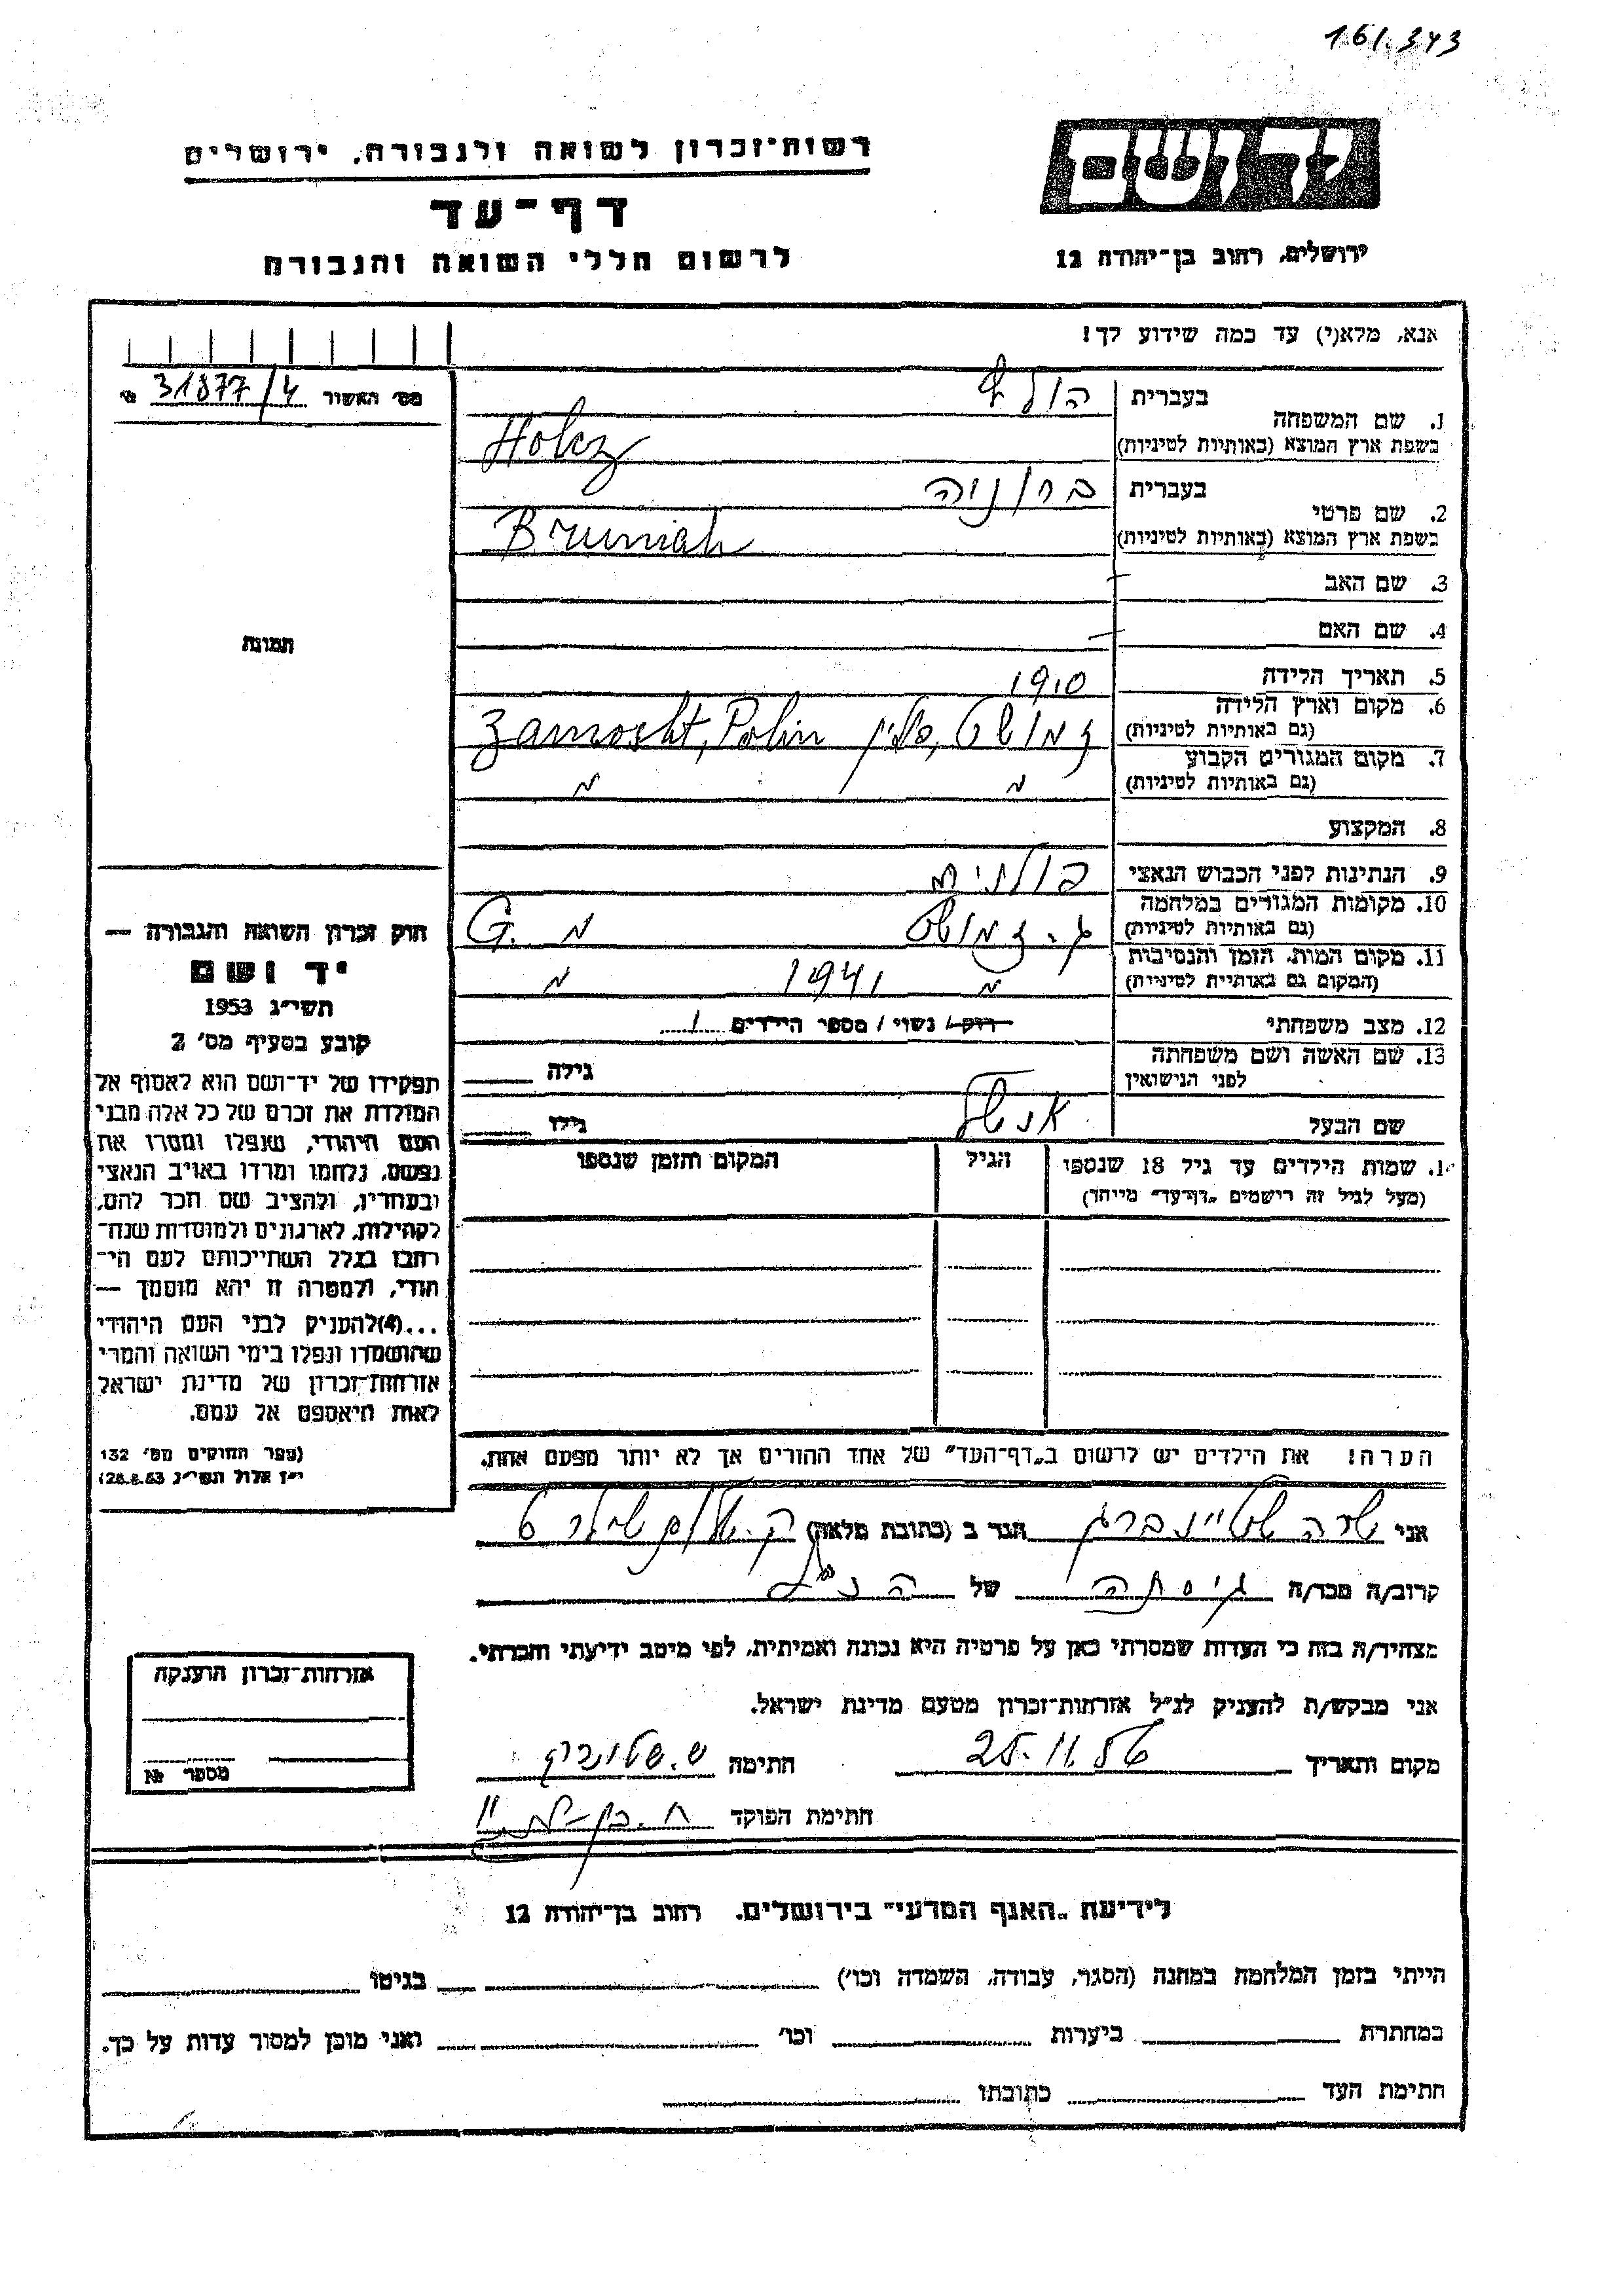 161.343
יד ושם
רשות־זכרון לשואה ולגבורה, ירושלים
דף־עד
לרשום חללי השואה והגבורה
ירושלים, רחוב בן־יהודה 12
אנא, מלא(י) עד כמה שידוע לך!
מס׳ האשור 31877/4 №
1. שם המשפחה
בעברית הולץ
בשפת ארץ המוצא (באותיות לטיניות) Holcz
2. שם פרטי
בעברית ברוניה
בשפת ארץ המוצא (באותיות לטיניות) Bruniah
3. שם האב —
4. שם האם —
5. תאריך הלידה 1910
6. מקום וארץ הלידה
(גם באותיות לטיניות) זמושט, פולין Zamosht, Polin
7. מקום המגורים הקבוע
(גם באותיות לטיניות) " "
8. המקצוע
9. הנתינות לפני הכבוש הנאצי פולנית
10. מקומות המגורים במלחמה
(גם באותיות לטיניות) ג. זמושט " G.
11. מקום המות, הזמן והנסיבות
(המקום גם באותיות לטיניות) " 1941 "
12. מצב משפחתי רוק/ נשוי / מספר הילדים 1
13. שם האשה ושם משפחתה
לפני הנישואין
גילה
שם הבעל אנשל
גילו
1. שמות הילדים עד גיל 18 שנספו
(מעל לגיל זה רישמים „דף־עד״ מייחד)
הגיל
המקום והזמן שנספו
הערה! את הילדים יש לרשום ב„דף־העד״ של אחד ההורים אך לא יותר מפעם אחת.
תמונה
חוק זכרון השואה והגבורה —
יד ושם
תשי״ג 1953
קובע בסעיף מס׳ 2
תפקידו של יד־ושם הוא לאסוף אל
המולדת את זכרם של כל אלה מבני
העם היהודי, שנפלו ומסרו את
נפשם, נלחמו ומרדו באויב הנאצי
ובעוזריו, ולהציב שם וזכר להם,
לקהילות, לארגונים ולמוסדות שנח־
רבו בגלל השתייכותם לעם הי־
הודי, ולמטרה זו יהא מוסמך —
...(4)להעניק לבני העם היהודי
שהושמדו ונפלו בימי השואה והמרי
אזרחות־זכרון של מדינת ישראל
לאות היאספם אל עמם.
(ספר החוקים מס׳ 132
י״ז אלול תשי״ג 28.8.53)
אני שרה שטיינברג הגר ב (כתובת מלאה) ק. 6
קרוב/ה מכר/ה גיסתה של הנ״ל
מצהיר/ה בזה כי העדות שמסרתי כאן על פרטיה היא נכונה ואמיתית, לפי מיטב ידיעתי והכרתי.
אני מבקש/ת להעניק לנ״ל אזרחות־זכרון מטעם מדינת ישראל.
מקום ותאריך 25.11.56 חתימה ש.
חתימת הפוקד
אזרחות־זכרון הוענקה
מספר №
לידיעת „האגף המדעי״ בירושלים, רחוב בן־יהודה 12
הייתי בזמן המלחמה במחנה (הסגר, עבודה, השמדה וכו׳) בגיטו
במחתרת ביערות וכו׳ ואני מוכן למסור עדות על כך.
חתימת העד כתובתו